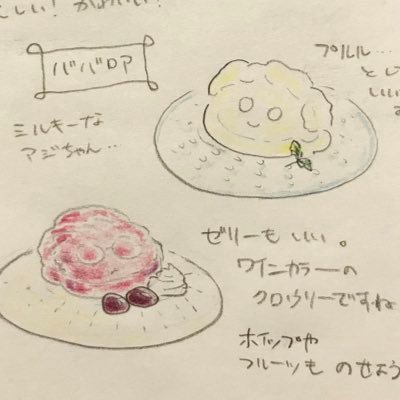 しい! かわいい!
ババロア
ミルキーな
アジちゃん…
プルル…
とし
いい
ゼリーも いい。
ワインカラーの
クロウリーですね
ホイップや
フルーツも のせよう